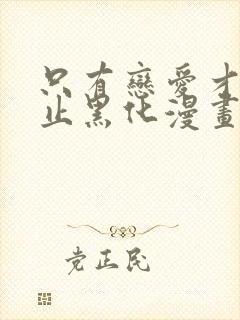 只有戀愛才
止黑化漫畫
党正民